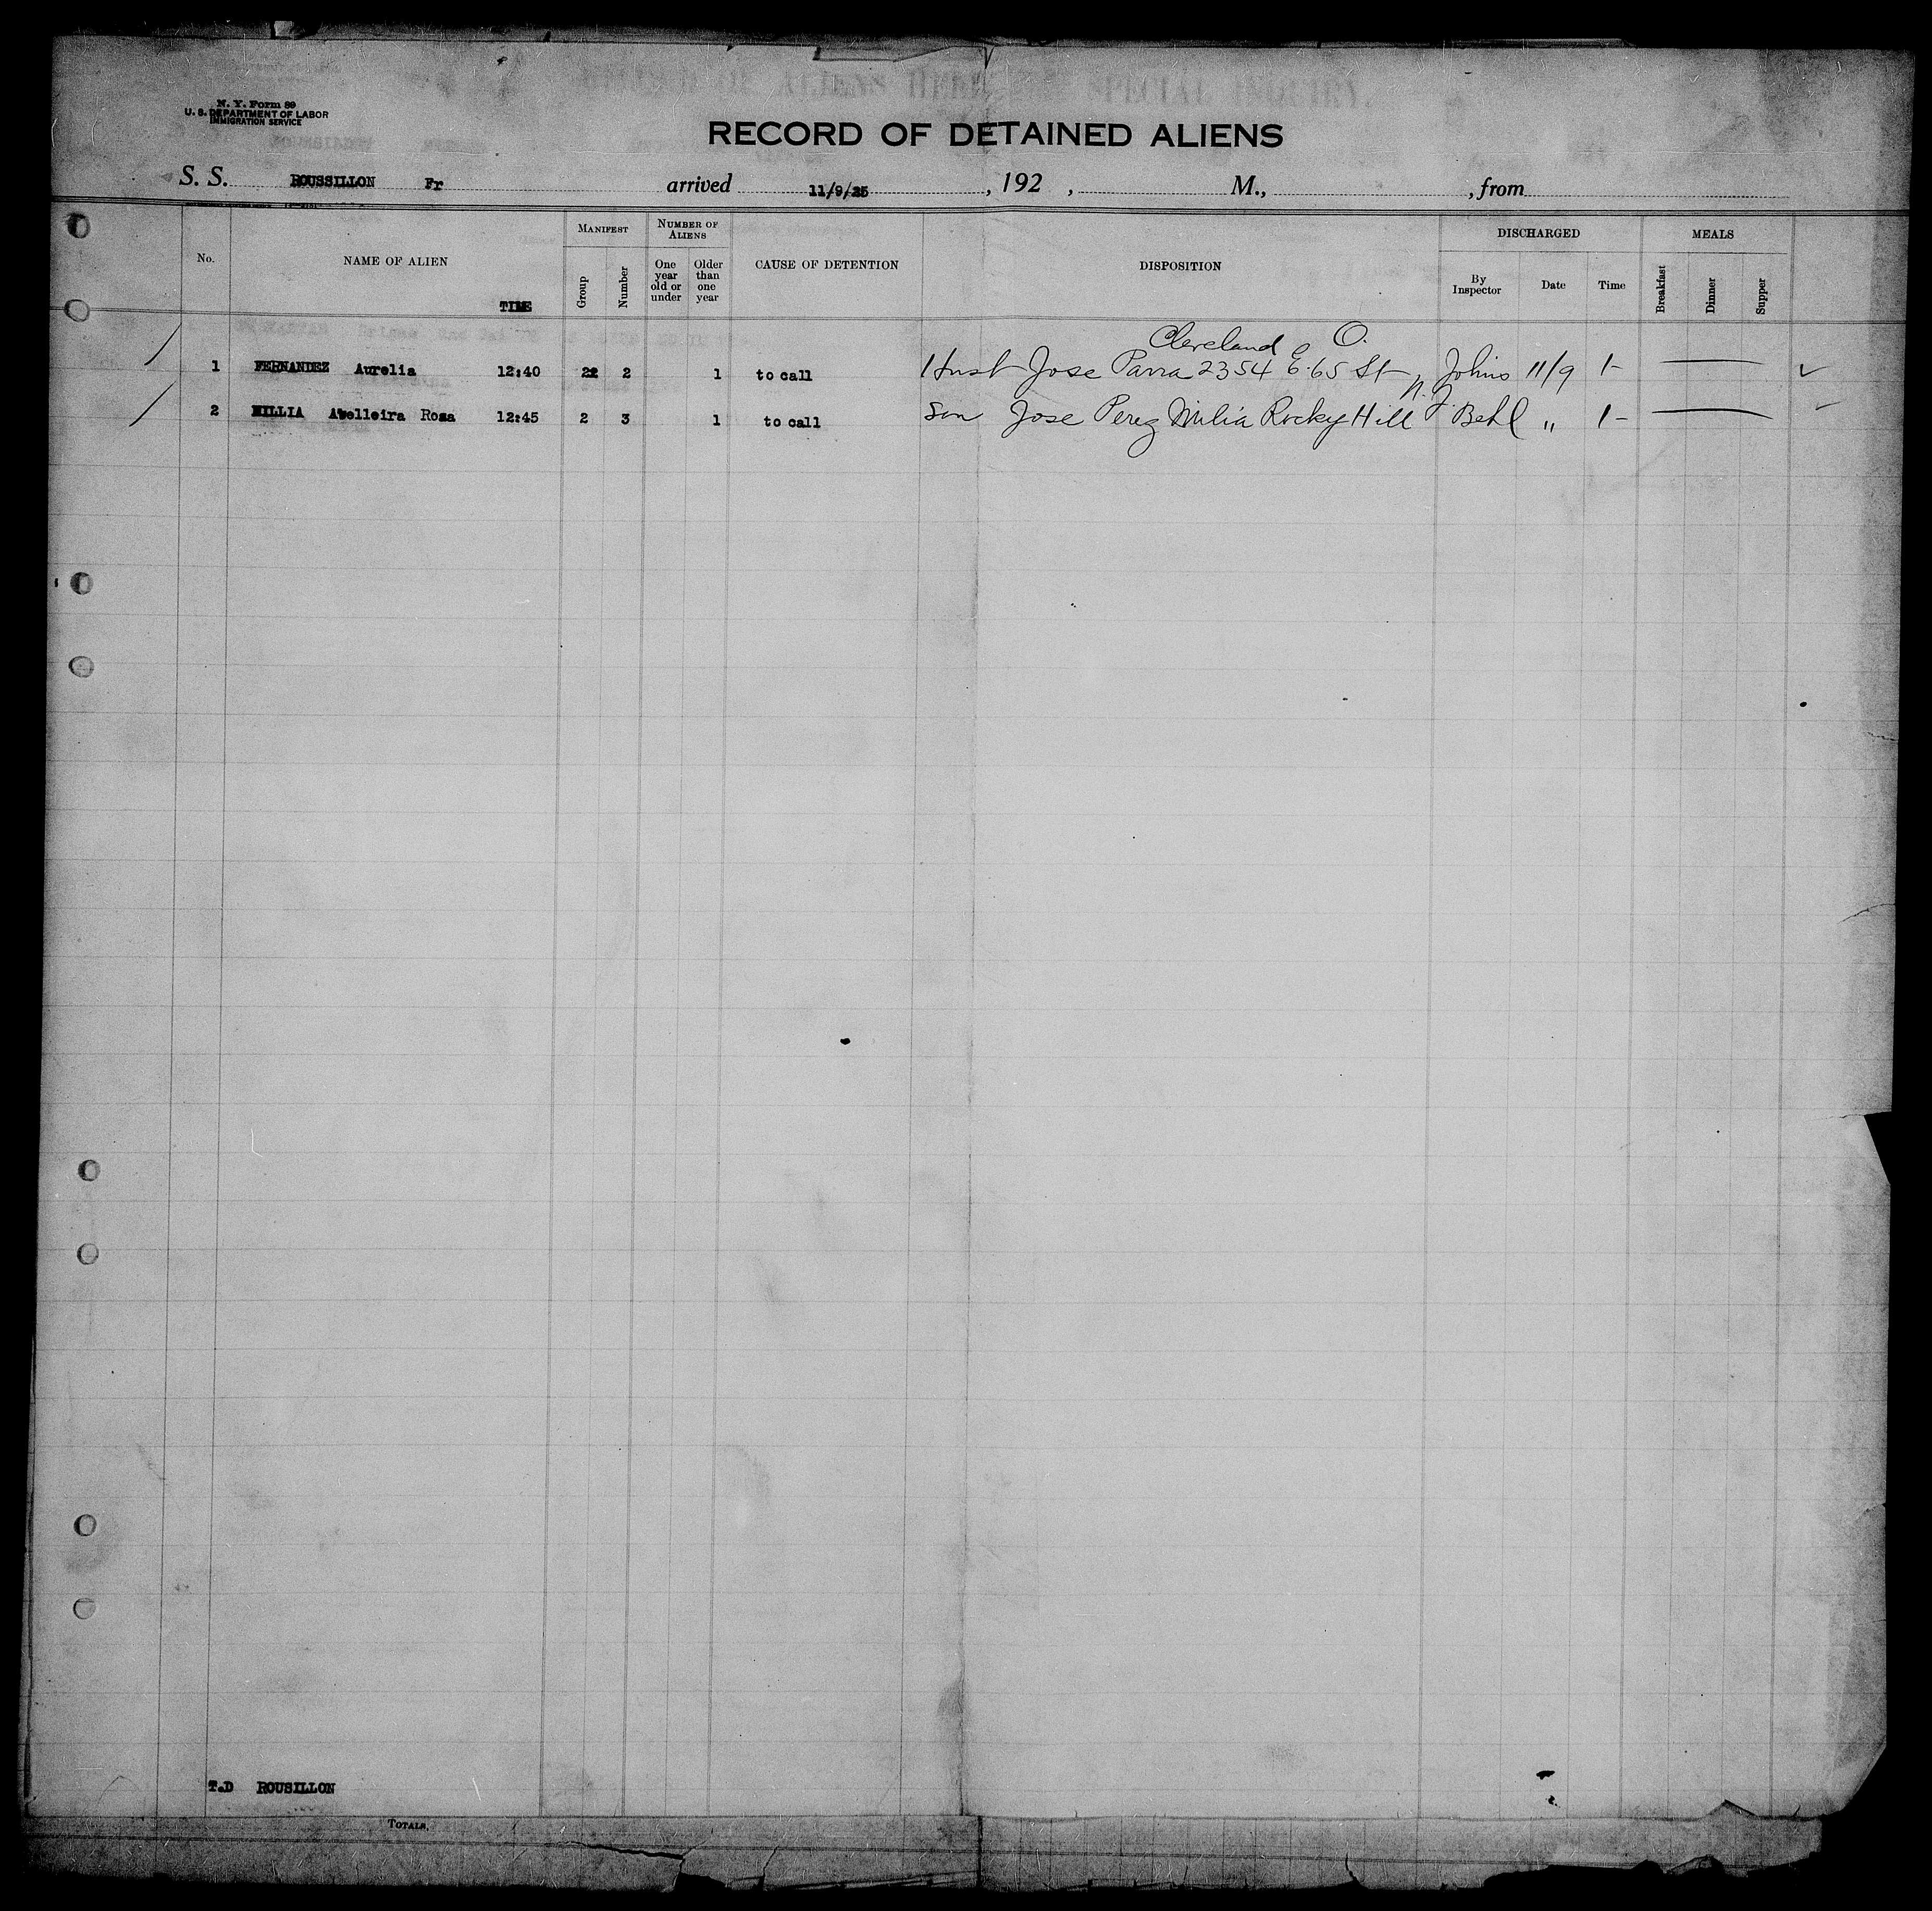 N. Y. Form 89
U. S. DEPARTMENT OF LABOR
IMMIGRATION SERVICE
RECORD OF DETAINED ALIENS
S. S. ROUSSILLON Fr arrived 11/9/25, 192 , M., , from
No. NAME OF ALIEN TIME MANIFEST Group Number NUMBER OF ALIENS One year old or under Older than one year CAUSE OF DETENTION DISPOSITION DISCHARGED By Inspector Date Time MEALS Breakfast Dinner Supper
Cleveland O.
1 FERNANDEZ Aurelia 12:40 22 2 1 to call Husb Jose Parra 2354 E. 65 St Johns 11/9 1-
2 MILLIA Avelleira Rosa 12:45 2 3 1 to call Son Jose Perez Milia Rocky Hill N. J. Behl " 1-
T.D ROUSILLON
TOTALS.